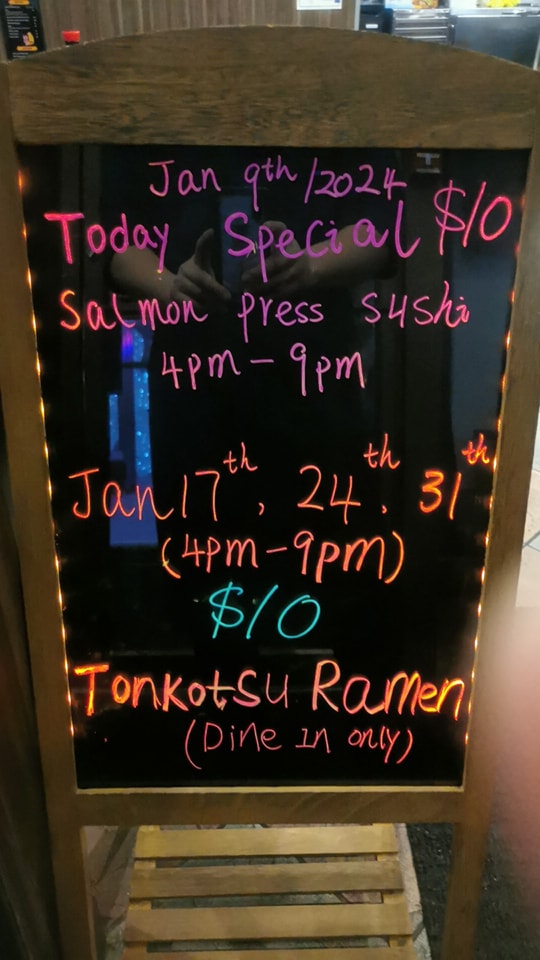 Jan 9th/2024
Today Special $10
Salmon press sushi
4pm - 9pm
Jan 17th, 24th, 31th
(4pm - 9pm)
$10
Tonkotsu Ramen
(Dine in only)